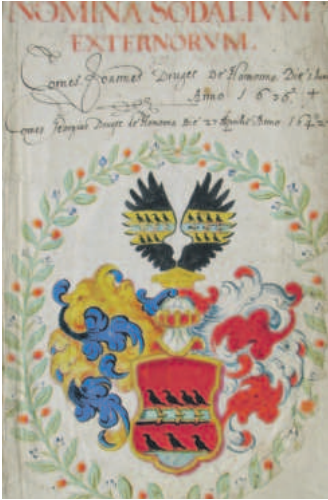 NOMINA SODALIVM
EXTERNORVM.
Comes Joannes Druget De Homonna Die
Anno 1626 +
Comes Georgius Druget de Homonna Die 27 Aprilis Anno 164